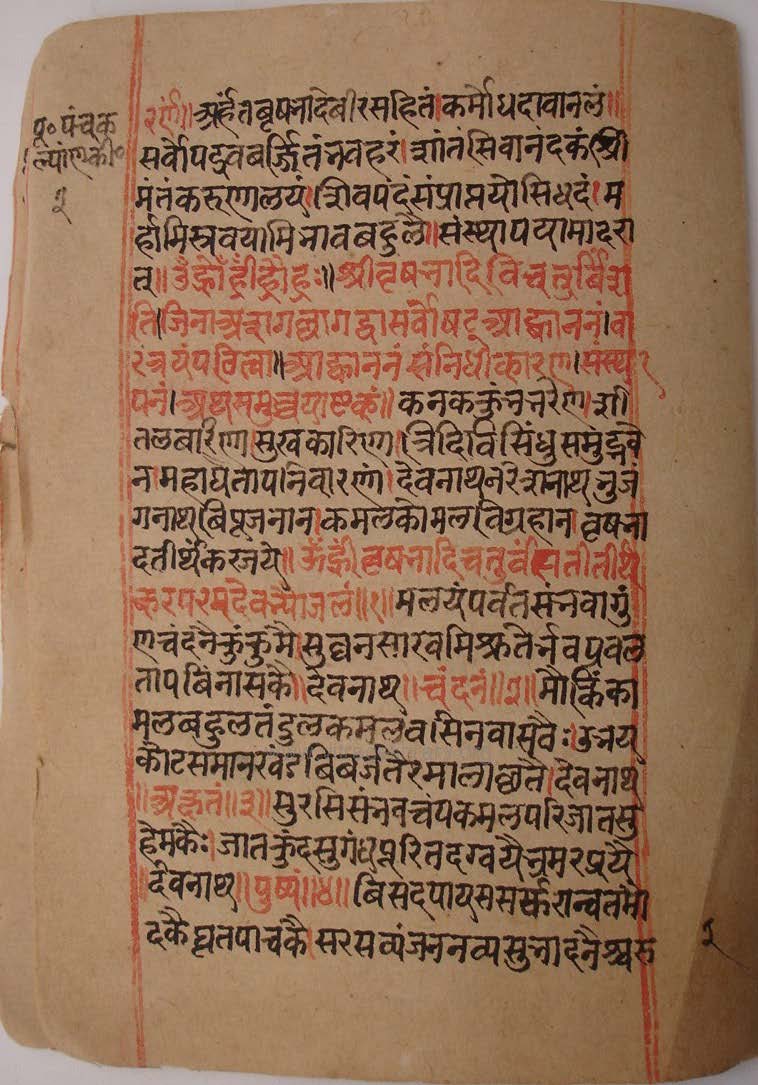 पू॰ पंचक
ल्यांणकी॰
१
रणं॥ अर्हंतबृषभादिबीरसहितं।कर्मौधदावानलं॥
सर्वोपद्रवबर्जितंभवहरं।शांतंसिवानंदकं॥श्री
मंतंकरुणालयं।शिवपदंसंप्राप्तयोसिधदं।म
र्हामिस्त्रवयामिभावबहुलै॥संस्थापयामादरा
त्॥ उँह्राँह्रीँह्रौह्रः॥श्रीवृषभादिविचतुर्बिंश
तिजिनाअत्रागछागछसर्वोषट्आह्वाननं।वा
रंत्रयंपवित्वा॥आह्वाननं संनिधीकारण।संस्थ
पनं।अथसमुच्चयाष्टकं॥ कनककुंभभरेण।शी
तलबारिण।सुखकारिण।त्रिदिविसिंधुसमुंद्भवे
न।महाघतापनिवारणं।देवनाथनरेशनाथभुजं
गनाथबिपूजनान।कमलकोमलविग्रहान।वृषभा
दतीर्थंकरजये॥ॐह्रीं वृषभादिचतुर्वीशतीतीर्थं
करपरमदेवभ्योजलं॥१॥मलयंपर्वतसंभवागुं
णचंदनैकुंकुमै।सुघनसारवमिश्रतेर्भवपवल
तापबिनासकै॥देवनाथ॥चंदनं॥२॥मौक्तिका
मलबहुलतंदुलकमलवसिनवासवैः।उभय
कोटसमानखंडबिबर्जतैरमालाछतै।देवनाथ
॥अक्षतं॥३॥सुरसिसंभवचंपकमलपरिजातसु
हेमकैः।जातकुंदसुगंधपूरितदग्वयैभ्रमरप्रयै
।देवनाथ॥पुष्पं॥४॥बिसदपायससर्स्करान्वतमो
दकैघृतपाचकै।सरसव्यंजननव्यसुभादनैश्चरु
१